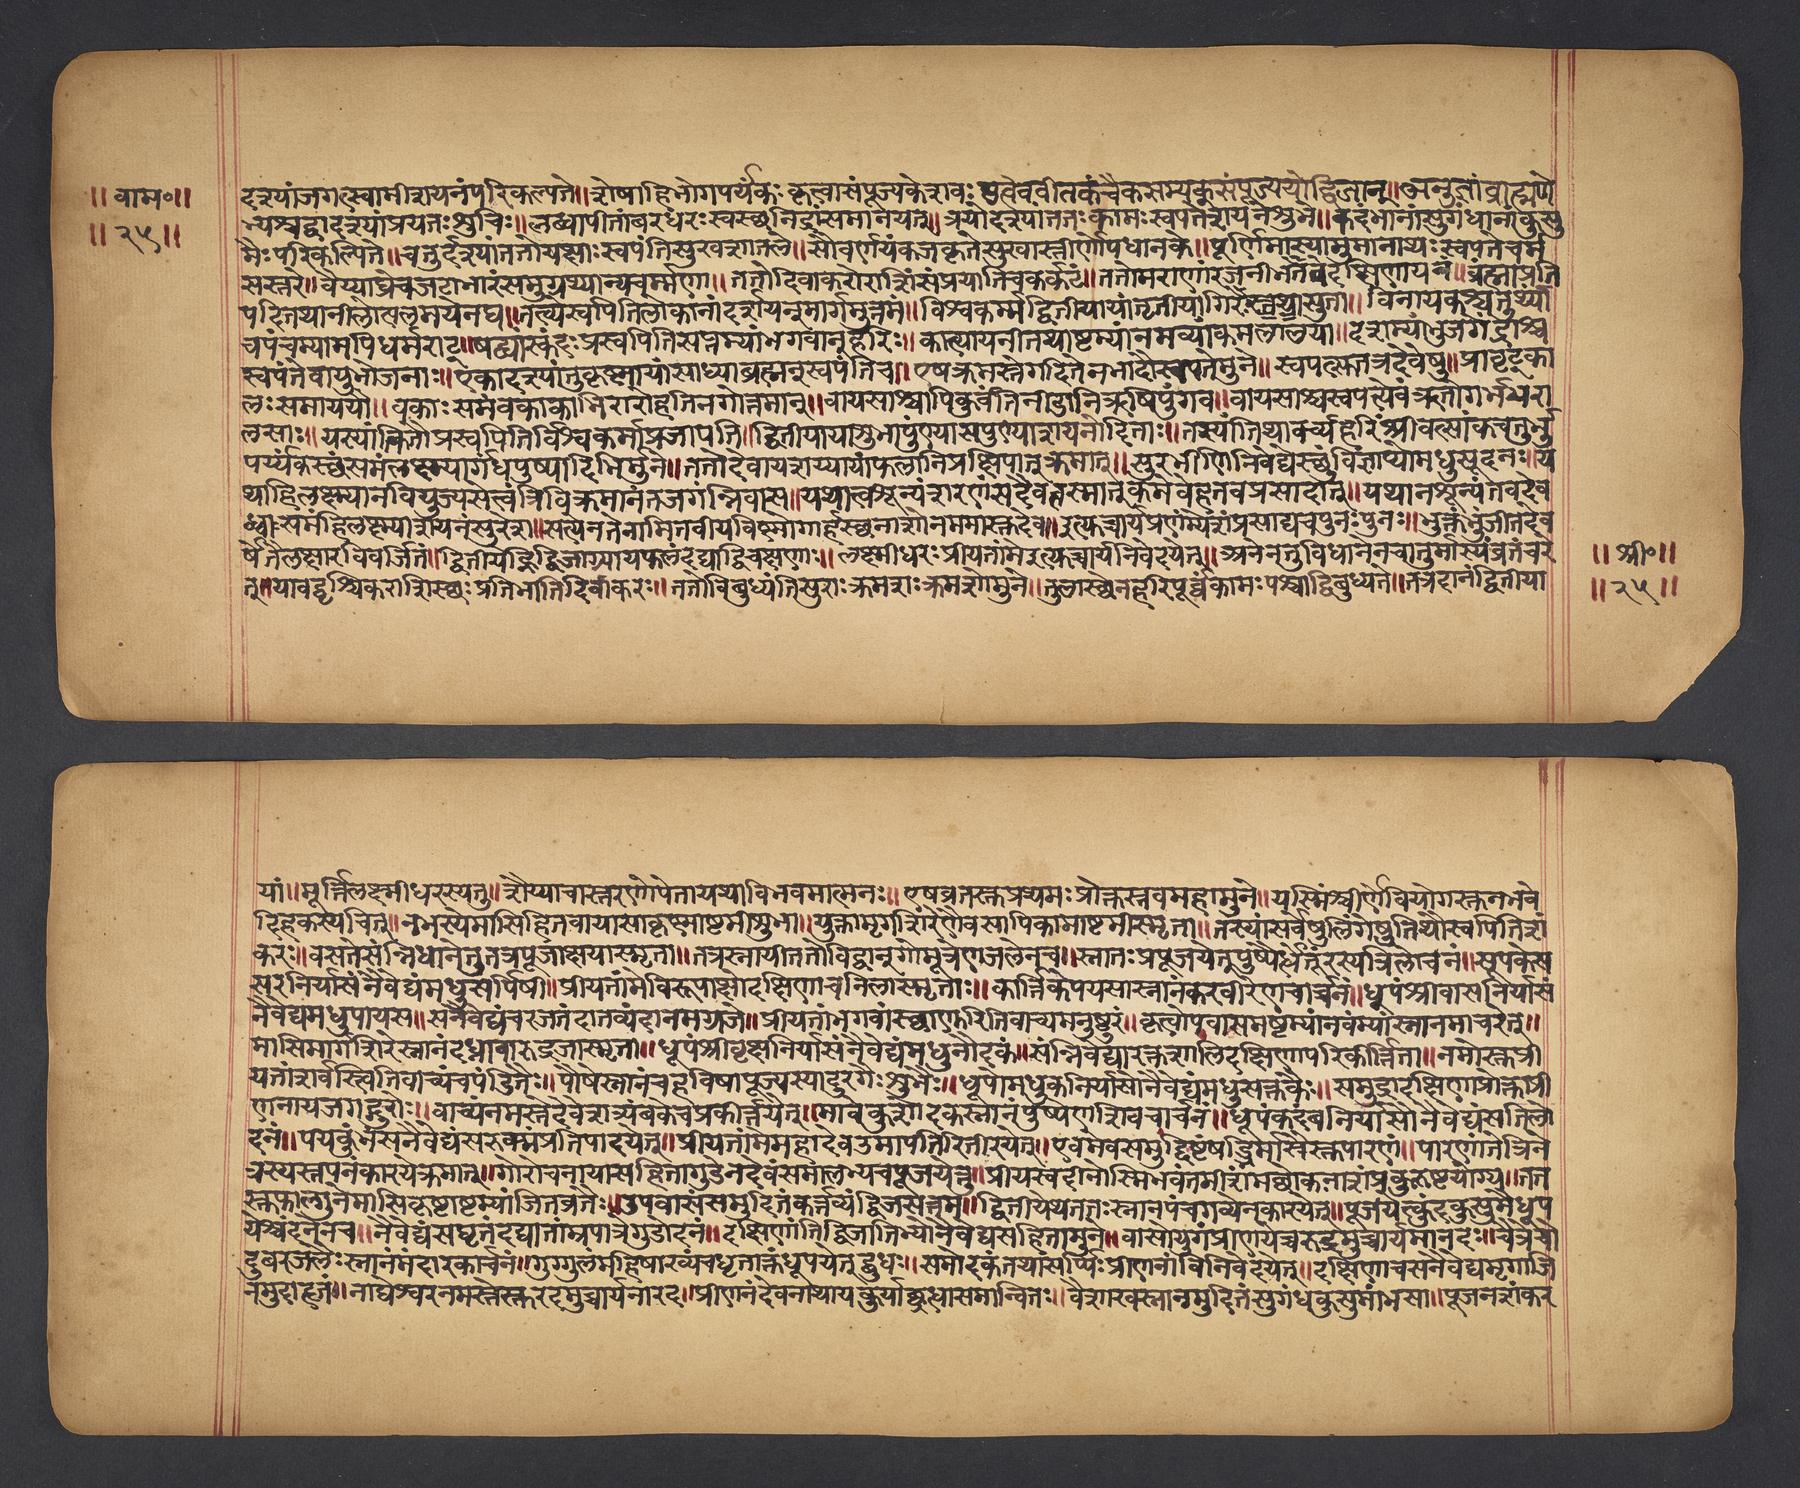 ॥ वाम॰॥
॥ २५॥
दश्यांजगत्स्वामीशयनंपरिकल्पते॥शेषाहिभोगपर्यंकः कृत्वासंपूज्यकेशवः सम्यक्संपूज्यवैद्विजान्॥अनुज्ञांब्राह्मणे
भ्यश्चद्वादश्यांप्रयतःशुचिः॥लब्ध्वापीतांबरधरःस्वस्थनिद्रांसमानयेत्॥त्रयोदश्यांततःकामःस्वपतेशयनेशुभे॥कदंबानांसुगंधानांकुसु
मैःपरिकल्पिते॥चतुर्दश्यांततोयक्षाःस्वपंतिसुखशीतले॥सौवर्णपंकजकृतेसुखास्तीर्णोपधानके॥पूर्णिमास्यामुमानाथःस्वपतेचर्म
सस्तरे॥वैयाघ्रेचजटाभारंसमुद्ग्रथ्यान्यचर्म्मणा॥ततोदिवाकरोराशिंसंप्रयातिचकर्कटं॥ततोमराणांरजनीभवतेदक्षिणायनं॥ब्रह्माप्रति
पदितथानीलोत्पलमयेनघ॥तल्पेस्वपितिलोकानांदर्शयन्मार्गमुत्तमं॥विश्वकर्म्माद्वितीयायांतृतीयायांगिरेःसुता॥विनायकश्चतुर्थ्यां
चपंचम्यामपिधर्मराट्॥षष्ठ्यांस्कंदःप्रस्वपितिसप्तम्यांभगवान्हरिः॥कात्यायनीतथाष्टम्यांनवम्यांकमलालया॥दशम्यांभुजगेंद्राश्च
स्वपंतेवायुभोजनाः॥एकादश्यांतुकृष्णायांसाध्याब्रह्मन्स्वपंतिच॥एषक्रमस्तेगदितोनभादौस्वपतेमुने॥स्वपत्सुतत्रदेवेषु॥प्रावृट्का
लःसमाययौ॥बकाःसमंबकाकाभिरारोहंतिनगोत्तमान्॥वायसाश्चापिकुर्वंतिनीडानिऋषिपुंगव॥वायसाश्चस्वपत्येवंऋतौगर्भभरा
लसाः॥यस्यांतिथौप्रस्वपितिविश्वकर्माप्रजापति॥द्वितीयायाशुभापुण्यासपुण्याशयनोदिताः॥तस्यांतिथावर्च्यहरिंश्रीवत्सांकंचतुर्भु
पर्य्यंकस्थंसमंलक्ष्म्यागंधपुष्पादिभिमुने॥ततोदेवायशय्यायांफलानिप्रक्षिपात्क्रमात्॥सुरभीणिनिवेद्येत्थंविज्ञाप्योमधुसूदनः॥य
थाहिलक्ष्म्यानवियुज्यसेत्वंत्रिविक्रमानंतजगन्निवास॥यथात्वशून्यंशरणंसदैवतस्मान्ममैवेहतवप्रसादात्॥यथानशून्यंतवदेव
समंहिलक्ष्म्याशयनंसुरेश॥सत्येनतेनामितवीर्यविष्णोगार्हस्थनाशोनममास्तुदेव॥इत्युच्चार्यप्रणम्येशंप्रसाद्यचपुनःपुनः॥नक्तंभुंजीतदेव
र्षेतैलक्षारविवर्जितं॥द्वितीयेह्निद्विजाग्र्यायफलंदद्याद्विचक्षणाः॥लक्ष्मीधरःप्रीयतांमेइत्युच्चार्यनिवेदयेत्॥अनेनतुविधानेनचातुर्मास्यंव्रतंचरे
॥ श्री॰॥
॥ २५॥
त्॥यावद्वृश्चिकराशिस्थः प्रतिभातिदिवाकरः॥ततोविबुध्यंतिसुराःक्रमशःक्रमशोमुने॥तुलास्थेतेहरिपूर्वकामःपश्चाद्विबुध्यते॥तत्रदानंद्वितीया
यां॥मूर्त्तिलक्ष्मीधरस्यतु॥शय्याचास्तरणोपेतायथाविभवमात्मनः॥एषव्रतस्तुप्रथमःप्रोक्तस्तवमहामुने॥यस्मिंश्चीर्णेवियोगस्तुनभवे
दिहकस्यचित्॥नभस्येमासिहितथायासाकृष्णाष्टमीशुभा॥युक्तामृगशिरेणैवसापिकामाष्टमीस्मृता॥तस्यांसर्वेषुलिंगेषुतिथौस्वपितिशं
करः॥वसतेसंन्निधानेतुतत्रपूजाक्षयास्मृता॥तत्रस्नायीतितोविद्वान्गोमूत्रेणजलेनच॥स्नातःप्रपूजयेत्पुष्पैर्धत्तूरस्यत्रिलोचनं॥सूपकेस
सरनिर्यासंनैवेद्यंमधुसर्पिषी॥प्रीयतांमेविरूपाक्षोदक्षिणाचनिलास्मृताः॥कार्त्तिकेपयसास्नानंकरवीरेणचार्चनं॥धूपंश्रीवासनिर्यासं
नैवेद्यंमधुपायस॥सनैवेद्यंचरजतंदातव्यंदानमग्रजे॥प्रीयतांभगवांस्थाणुरितिवाच्यमनुष्टुरं॥कृत्वोपवासमष्टम्यांनवम्यांस्नानमाचरेत्॥
मासिमार्गशिरेस्नानंदध्नाचारुद्रजास्मृता॥धूपंश्रीवृक्षनिर्यासंनैवेद्यंमधुनौदकं॥संनिवेद्यारक्तशालिदक्षिणापरिकीर्त्तिता॥नमोस्तुप्री
यतांशर्वस्त्वितिवाच्यंचपंडितैः॥पौषेस्नानंचहविषापूज्यस्याद्दुरगैःशुभैः॥धूपोमधुकनिर्यासोनैवेद्यंमधुसक्तवैः॥समुद्रादक्षिणाप्रोक्ताप्री
णनायजगद्गुरोः॥वाच्यंनमस्तेदेवेशत्र्यंबकेचप्रकीर्त्तयेत्॥माघेकुशोदकस्नानंपुष्पेणशिवचार्चनं॥धूपंकदंबनिर्यासोनैवेद्यंसतिलो
दनं॥पयकुंभंसनैवेद्यंसरुक्मंप्रतिपादयेत्॥प्रीयतांमेमहादेवउमापतिरितीरयेत्॥एवमेवसमुद्दिष्टंषड्भिर्मासैस्तुपारणं॥पारणांतेत्रिने
त्रस्यस्नपनंकारयेत्क्रमात्॥गोरोचनायासहितागुडेनदेवंसमालभ्यचपूजयेत्तु॥
स्तुफाल्गुनेमासिकृष्टाष्टम्यांजितव्रतैः॥उपवासंसमुदितंकर्त्तव्यंद्विजसत्तम॥द्वितीयेह्नेततःस्नानंपंचगव्येनकारयेत्॥पूजयेत्कुंदकुसुमैधूप
येच्चंदनेनच॥नैवेद्यंसघृतंदद्यात्ताम्रपात्रेगुडोदनं॥दक्षिणांतिद्विजातिभ्योनैवेद्यसहितांमुने॥वासोयुगंप्रीणयेच्चरुद्रमुच्चार्यमानदः॥चैत्रेचो
दुंबरजलैःस्नानंमंदारकार्चनं॥गुग्गुलंमहिषारव्यंचधृताक्तंधूपयेत्द्बुधः॥समोदकंतथासर्प्पिःप्रीणनांविनिवेदयेत्॥दक्षिणाचसनैवेद्यमृगाजि
नमुदाहृतं॥नाघेश्वरनमस्तेस्तुइदमुच्चार्यनारद॥प्रीणनंदेवनाथायकुर्याच्छ्रद्धासमान्वितः॥वैशाखेस्नानमुदितंसुगंधकुसुमांभसा॥पूजनशंकर